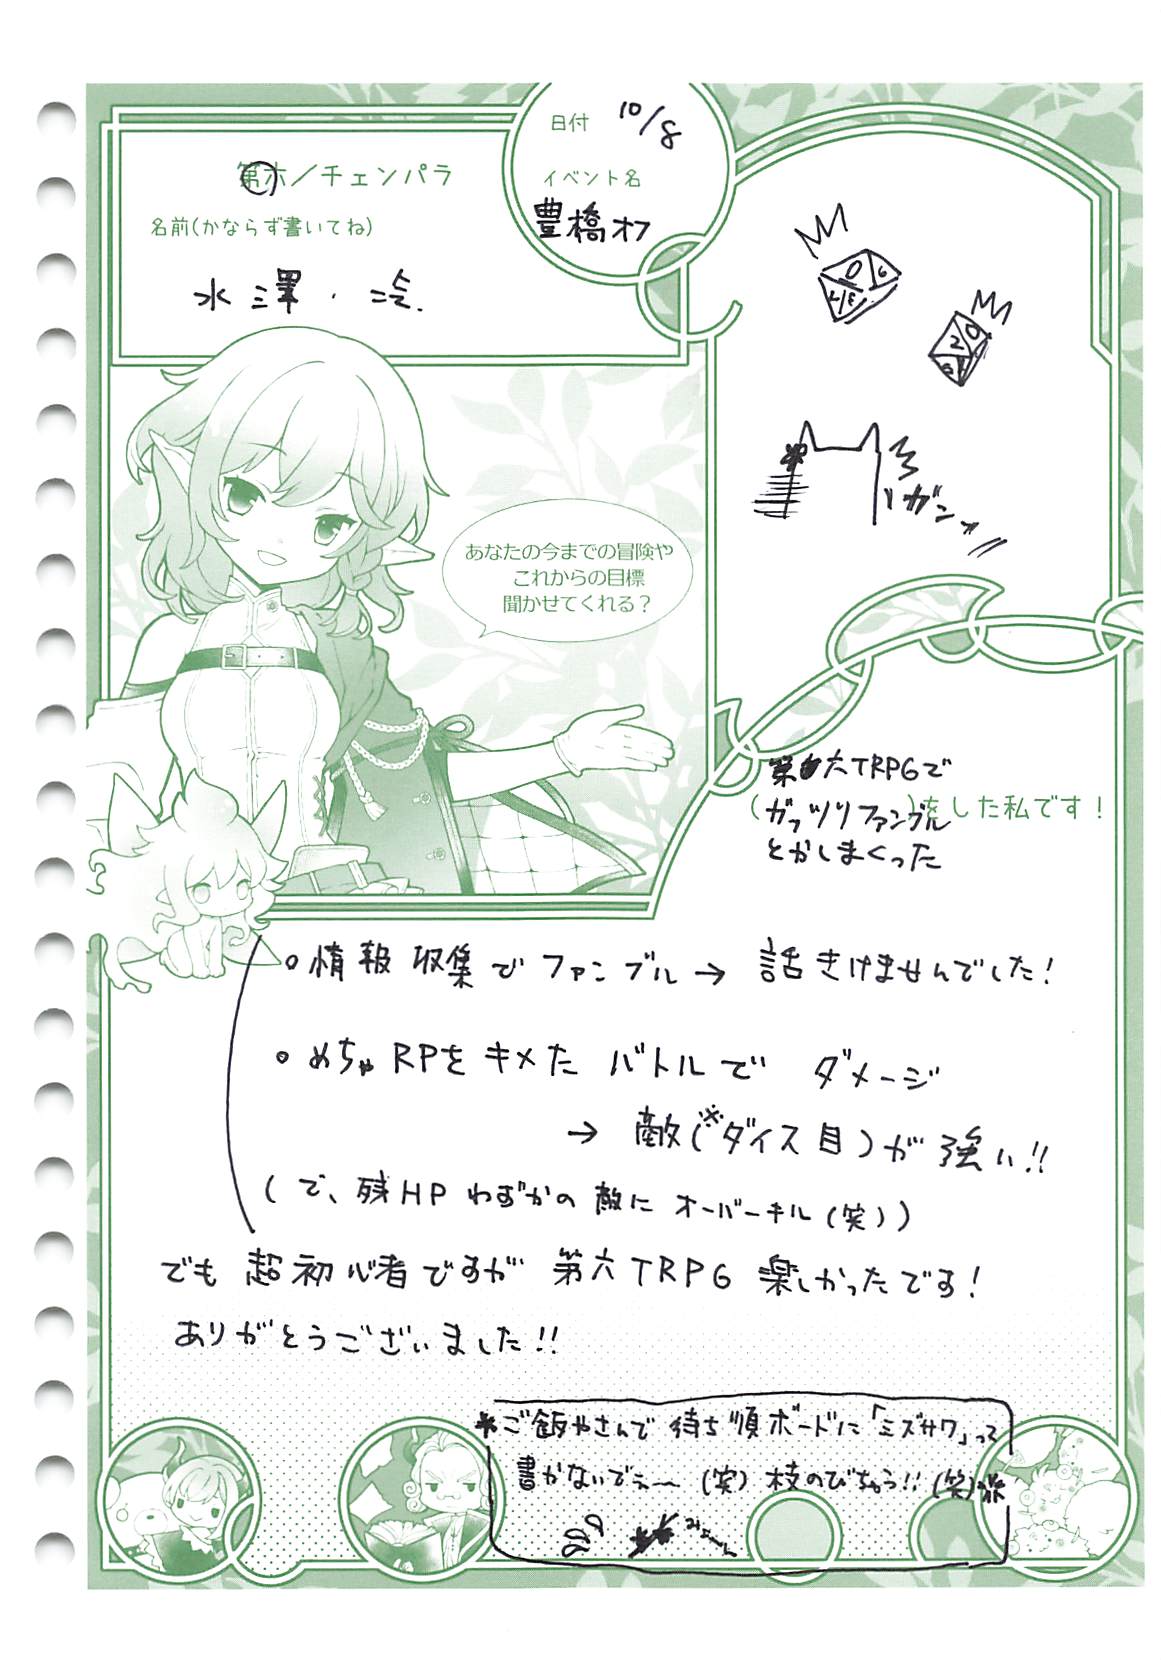 日付 10/8
第六／チェンパラ
イベント名
名前(かならず書いてね)
豊橋オフ
水澤・
あなたの今までの冒険や
これからの目標
聞かせてくれる？
ガンッ
第六TRPGで
(ガッツリファンブル)をした私です！
とかしまくった
◦情報収集でファンブル→ 話きけませんでした！
◦めちゃRPをキメたバトルで ダメージ
→ 敵(※ダイス目)が強い!!
(で、残HPわずかの敵にオーバーキル(笑))
でも超初心者ですが 第六TRPG 楽しかったです！
ありがとうございました!!
*ご飯やさんで待ち順ボードに「ミズサワ」って
書かないでぇ〜(笑)枝のびちゃう!!(笑)